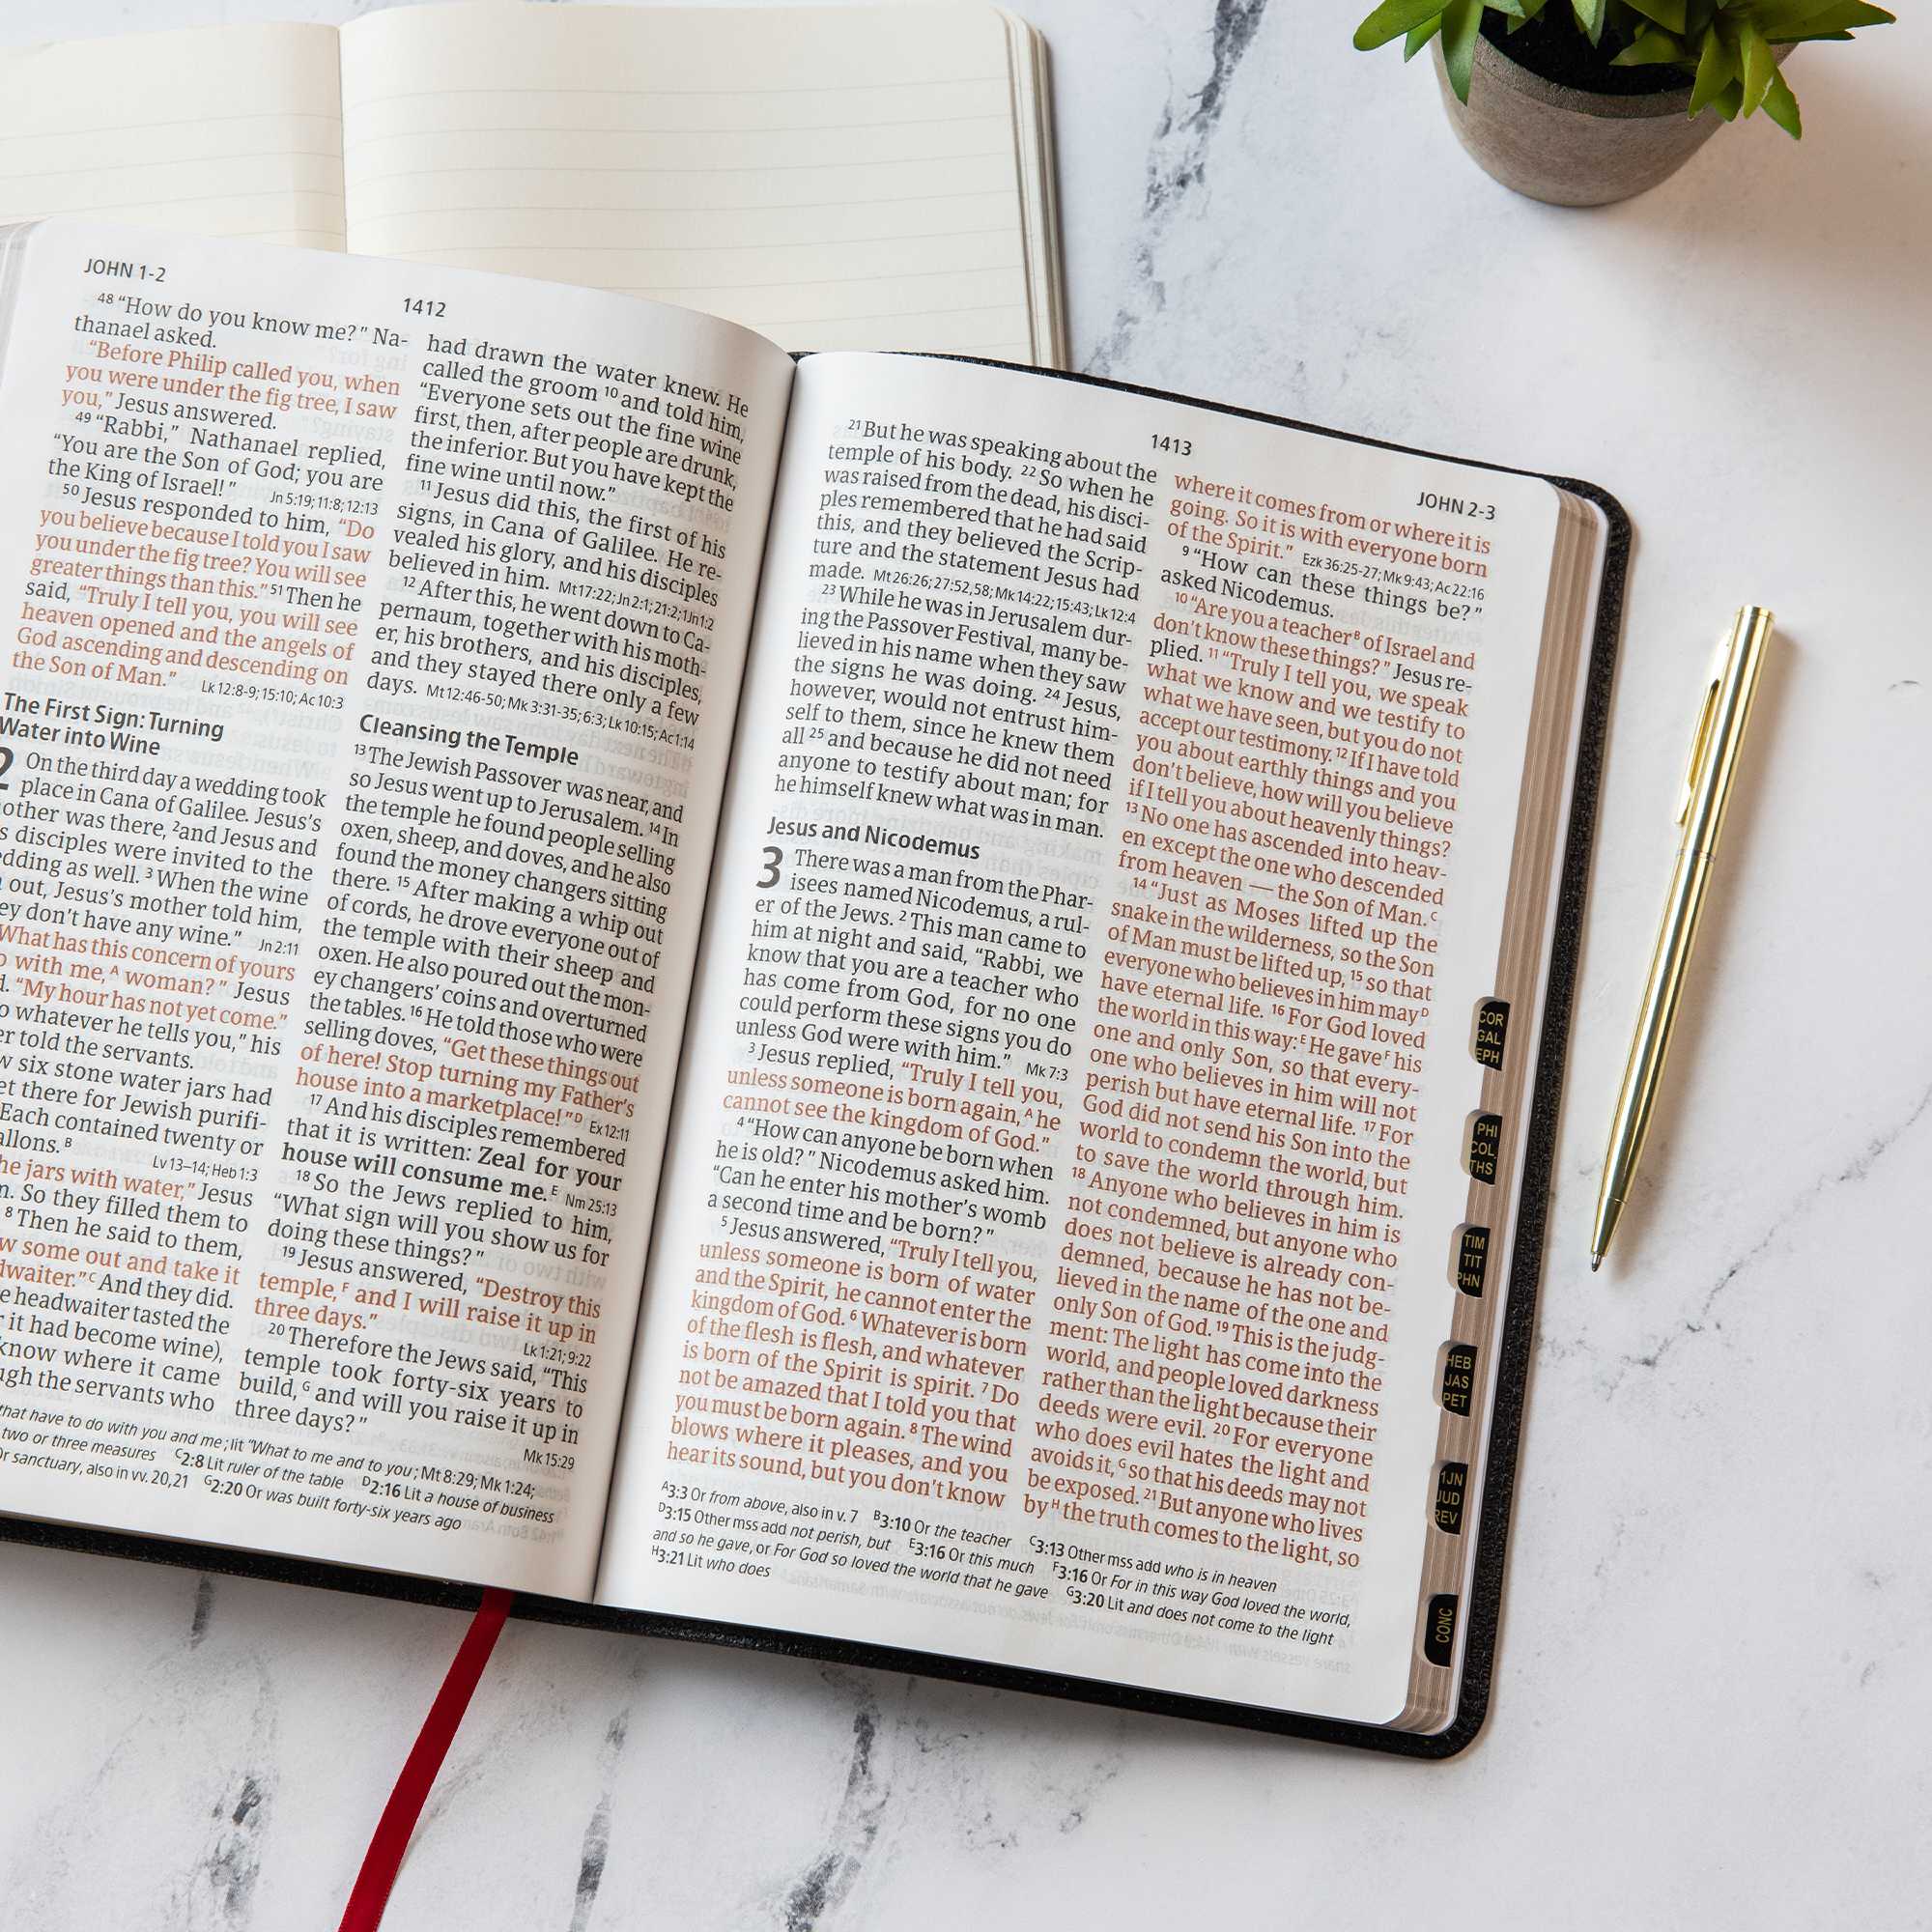 JOHN 1-2
1412
48 “How do you know me?” Na-
thanael asked.
“Before Philip called you, when
you were under the fig tree, I saw
you,” Jesus answered.
49 “Rabbi,” Nathanael replied,
“You are the Son of God; you are
the King of Israel!” Jn 5:19; 11:8; 12:13
50 Jesus responded to him, “Do
you believe because I told you I saw
you under the fig tree? You will see
greater things than this.” 51 Then he
said, “Truly I tell you, you will see
heaven opened and the angels of
God ascending and descending on
the Son of Man.” Lk 12:8-9; 15:10; Ac 10:3
The First Sign: Turning
Water into Wine
2 On the third day a wedding took
place in Cana of Galilee. Jesus’s
other was there, 2 and Jesus and
s disciples were invited to the
edding as well. 3 When the wine
out, Jesus’s mother told him,
ey don’t have any wine.” Jn 2:11
What has this concern of yours
with me,A woman?” Jesus
“My hour has not yet come.”
o whatever he tells you,” his
er told the servants.
w six stone water jars had
et there for Jewish purifi-
Each contained twenty or
allons.B Lv 13–14; Heb 1:3
he jars with water,” Jesus
So they filled them to
8 Then he said to them,
w some out and take it
dwaiter.”C And they did.
e headwaiter tasted the
it had become wine),
know where it came
ugh the servants who
had drawn the water knew. He
called the groom 10 and told him,
“Everyone sets out the fine wine
first, then, after people are drunk,
the inferior. But you have kept the
fine wine until now.”
11 Jesus did this, the first of his
signs, in Cana of Galilee. He re-
vealed his glory, and his disciples
believed in him. Mt 17:22; Jn 2:1; 21:2; 1Jn 1:2
12 After this, he went down to Ca-
pernaum, together with his moth-
er, his brothers, and his disciples,
and they stayed there only a few
days. Mt 12:46-50; Mk 3:31-35; 6:3; Lk 10:15; Ac 1:14
Cleansing the Temple
13 The Jewish Passover was near, and
so Jesus went up to Jerusalem. 14 In
the temple he found people selling
oxen, sheep, and doves, and he also
found the money changers sitting
there. 15 After making a whip out
of cords, he drove everyone out of
the temple with their sheep and
oxen. He also poured out the mon-
ey changers’ coins and overturned
the tables. 16 He told those who were
selling doves, “Get these things out
of here! Stop turning my Father’s
house into a marketplace!”D Ex 12:11
17 And his disciples remembered
that it is written: Zeal for your
house will consume me.E Nm 25:13
18 So the Jews replied to him,
“What sign will you show us for
doing these things?”
19 Jesus answered, “Destroy this
temple,F and I will raise it up in
three days.” Lk 1:21; 9:22
20 Therefore the Jews said, “This
temple took forty-six years to
build,G and will you raise it up in
three days?” Mk 15:29
that have to do with you and me; lit “What to me and to you; Mt 8:29; Mk 1:24;
two or three measures C2:8 Lit ruler of the table D2:16 Lit a house of business
Or sanctuary, also in vv. 20,21 G2:20 Or was built forty-six years ago
1413
JOHN 2-3
21 But he was speaking about the
temple of his body. 22 So when he
was raised from the dead, his disci-
ples remembered that he had said
this, and they believed the Scrip-
ture and the statement Jesus had
made. Mt 26:26; 27:52,58; Mk 14:22; 15:43; Lk 12:4
23 While he was in Jerusalem dur-
ing the Passover Festival, many be-
lieved in his name when they saw
the signs he was doing. 24 Jesus,
however, would not entrust him-
self to them, since he knew them
all 25 and because he did not need
anyone to testify about man; for
he himself knew what was in man.
Jesus and Nicodemus
3 There was a man from the Phar-
isees named Nicodemus, a rul-
er of the Jews. 2 This man came to
him at night and said, “Rabbi, we
know that you are a teacher who
has come from God, for no one
could perform these signs you do
unless God were with him.” Mk 7:3
3 Jesus replied, “Truly I tell you,
unless someone is born again,A he
cannot see the kingdom of God.”
4 “How can anyone be born when
he is old?” Nicodemus asked him.
“Can he enter his mother’s womb
a second time and be born?”
5 Jesus answered, “Truly I tell you,
unless someone is born of water
and the Spirit, he cannot enter the
kingdom of God. 6 Whatever is born
of the flesh is flesh, and whatever
is born of the Spirit is spirit. 7 Do
not be amazed that I told you that
you must be born again. 8 The wind
blows where it pleases, and you
hear its sound, but you don’t know
where it comes from or where it is
going. So it is with everyone born
of the Spirit.” Ezk 36:25-27; Mk 9:43; Ac 22:16
9 “How can these things be?”
asked Nicodemus.
10 “Are you a teacherB of Israel and
don’t know these things?” Jesus re-
plied. 11 “Truly I tell you, we speak
what we know and we testify to
what we have seen, but you do not
accept our testimony. 12 If I have told
you about earthly things and you
don’t believe, how will you believe
if I tell you about heavenly things?
13 No one has ascended into heav-
en except the one who descended
from heaven — the Son of Man.C
14 “Just as Moses lifted up the
snake in the wilderness, so the Son
of Man must be lifted up, 15 so that
everyone who believes in him mayD
have eternal life. 16 For God loved
the world in this way:E He gaveF his
one and only Son, so that every-
one who believes in him will not
perish but have eternal life. 17 For
God did not send his Son into the
world to condemn the world, but
to save the world through him.
18 Anyone who believes in him is
not condemned, but anyone who
does not believe is already con-
demned, because he has not be-
lieved in the name of the one and
only Son of God. 19 This is the judg-
ment: The light has come into the
world, and people loved darkness
rather than the light because their
deeds were evil. 20 For everyone
who does evil hates the light and
avoids it,G so that his deeds may not
be exposed. 21 But anyone who lives
byH the truth comes to the light, so
A3:3 Or from above, also in v. 7 B3:10 Or the teacher C3:13 Other mss add who is in heaven
D3:15 Other mss add not perish, but E3:16 Or this much F3:16 Or For in this way God loved the world,
and so he gave, or For God so loved the world that he gave G3:20 Lit and does not come to the light
H3:21 Lit who does
COR
GAL
EPH
PHI
COL
THS
TIM
TIT
PHN
HEB
JAS
PET
1JN
JUD
REV
CONC